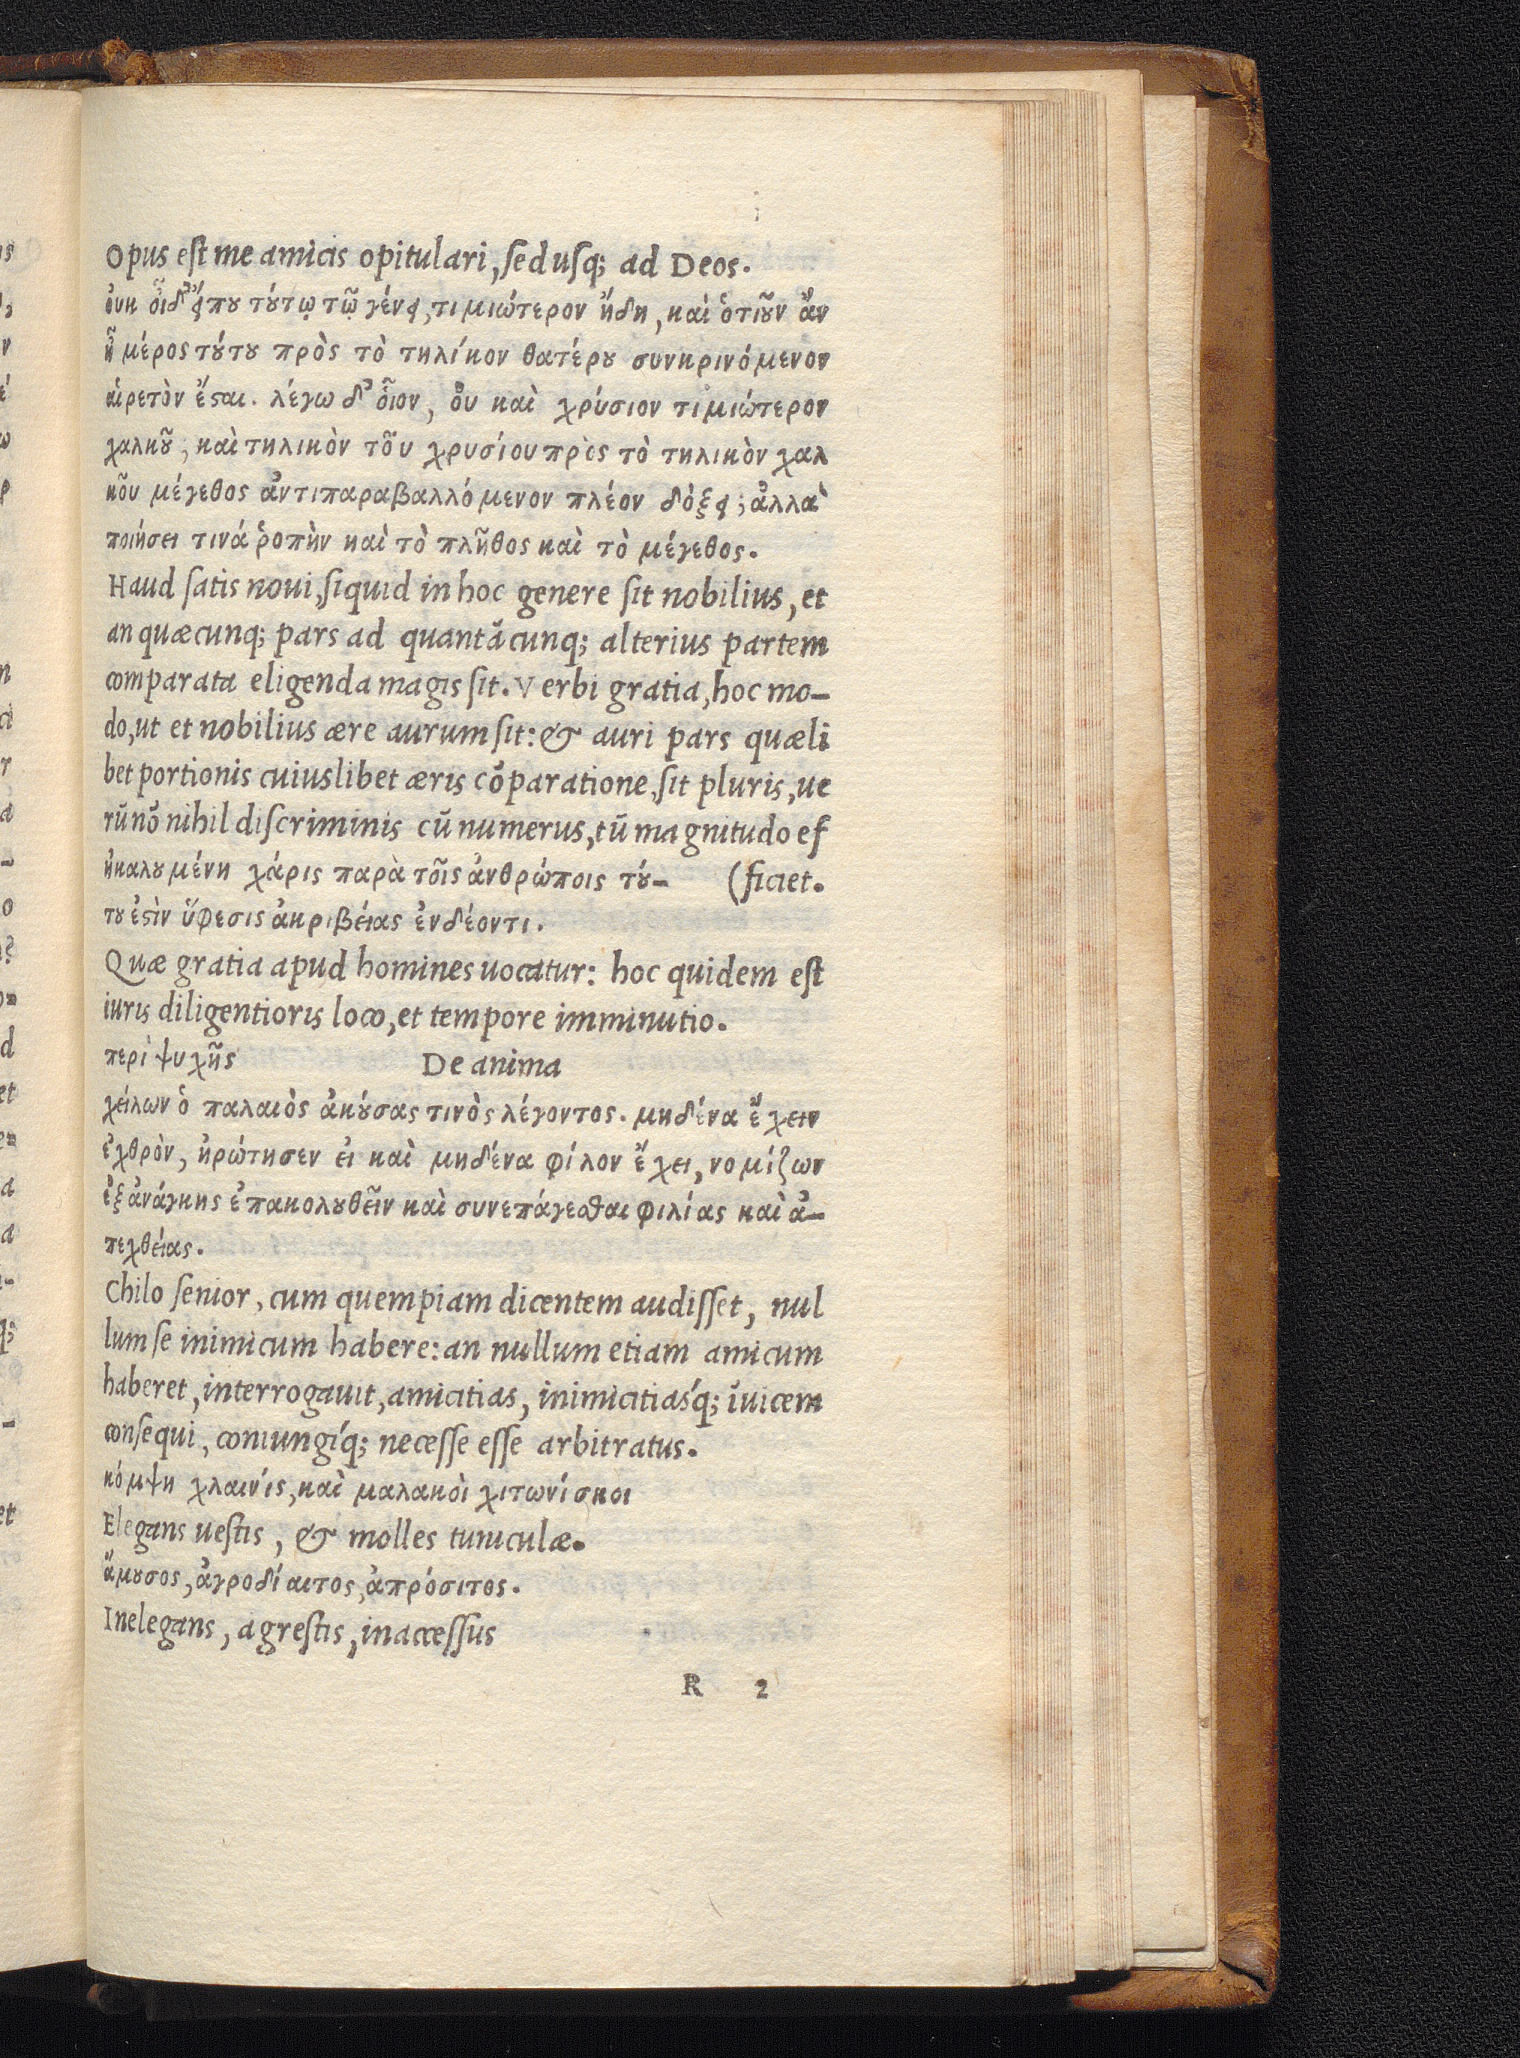 Opus est me amicis opitulari, sed usq; ad Deos.
ὀυκ ὀῖδ' ἔιπου τούτῳ τῷ γένει, τιμιώτερον ἤδη, καὶ ὁτιοῦν ἂν
ἦ μέρος τούτου πρὸς τὸ τηλίκον θατέρου συνκρινόμενον
ἁιρετὸν ἔσται. λέγω δ' ὀῖον, ὀυ καὶ χρύσιον τιμιώτερον
χαλκοῦ; καὶ τηλικὸν τοῦ χρυσίου πρὸς τὸ τηλικὸν χαλ
κοῦ μέγεθος ἀντιπαραβαλλόμενον πλέον δόξει; ἀλλὰ
ποιήσει τινά ῥοπὴν καὶ τὸ πλῆθος καὶ τὸ μέγεθος.
Haud satis noui, siquid in hoc genere sit nobilius, et
an quæcunq; pars ad quantācunq; alterius partem
comparata eligenda magis sit. Verbi gratia, hoc mo-
do, ut et nobilius ære aurum sit: & auri pars quæli
bet portionis cuiuslibet æris cōparatione, sit pluris, ue
rū nō nihil discriminis cū numerus, tū magnitudo ef
ἡ καλουμένη χάρις παρὰ τοῖς ἀνθρώποις τού- (ficiet.
του ἐστὶν ὕφεσις ἀκριβείας ἐν δέοντι.
Quæ gratia apud homines uocatur: hoc quidem est
iuris diligentioris loco, et tempore imminutio.
περὶ ψυχῆς De anima
χείλων ὁ παλαιὸς ἀκούσας τινὸς λέγοντος. μηδένα ἔχειν
ἐχθρὸν, ἠρώτησεν ἐι καὶ μηδένα φίλον ἔχει, νομίζων
ἐξ ἀνάγκης ἐπακολουθεῖν καὶ συνεπάγεσθαι φιλίας καὶ ἀ-
πεχθείας.
Chilo senior, cum quempiam dicentem audisset, nul
lum se inimicum habere: an nullum etiam amicum
haberet, interrogauit, amicitias, inimicitiasq́; īuicem
consequi, coniungiq́; necesse esse arbitratus.
κόμψη χλαινίς, καὶ μαλακὸι χιτωνίσκοι
Elegans uestis, & molles tuniculæ.
ἄμουσος, ἀγροδίαιτος, ἀπρόσιτος.
Inelegans, agrestis, inaccessus
R 2